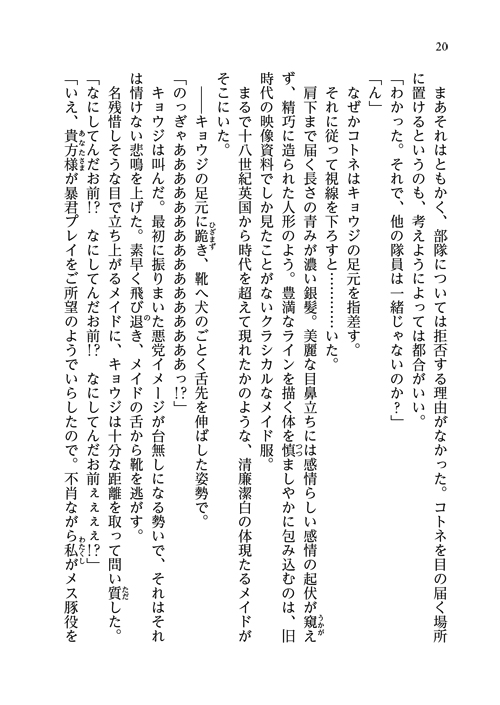 20
まあそれはともかく、部隊については拒否する理由がなかった。コトネを目の届く場所
に置けるというのも、考えようによっては都合がいい。
「わかった。それで、他の隊員は一緒じゃないのか？」
「ん」
なぜかコトネはキョウジの足元を指差す。
それに従って視線を下ろすと…………いた。
肩下まで届く長さの青みが濃い銀髪。美麗な目鼻立ちには感情らしい感情の起伏が窺え
ず、精巧に造られた人形のよう。豊満なラインを描く体を慎ましやかに包み込むのは、旧
時代の映像資料でしか見たことがないクラシカルなメイド服。
まるで十八世紀英国から時代を超えて現れたかのような、清廉潔白の体現たるメイドが
そこにいた。
――キョウジの足元に跪き、靴へ犬のごとく舌先を伸ばした姿勢で。
「のっぎゃあああああああああああああああっ!?」
キョウジは叫んだ。最初に振りまいた悪党イメージが台無しになる勢いで、それはそれ
は情けない悲鳴を上げた。素早く飛び退き、メイドの舌から靴を逃がす。
名残惜しそうな目で立ち上がるメイドに、キョウジは十分な距離を取って問い質した。
「なにしてんだお前!?　なにしてんだお前!?　なにしてんだお前ぇぇぇぇ!?」
「いえ、貴方様が暴君プレイをご所望のようでいらしたので。不肖ながら私がメス豚役を